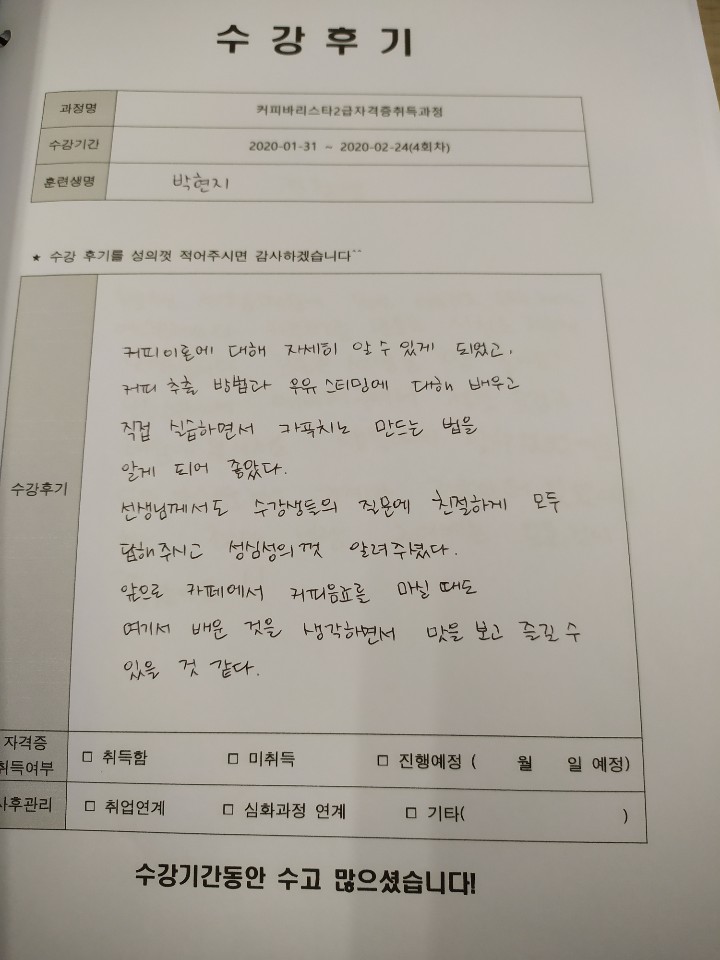 수강후기
과정명 커피바리스타2급자격증취득과정
수강기간 2020-01-31 ~ 2020-02-24(4회차)
훈련생명 박현지
★ 수강 후기를 성의껏 적어주시면 감사하겠습니다^^
수강후기
커피이론에 대해 자세히 알 수 있게 되었고,
커피 추출 방법과 우유 스티밍에 대해 배우고
직접 실습하면서 카푸치노 만드는 법을
알게 되어 좋았다.
선생님께서도 수강생들의 질문에 친절하게 모두
답해주시고 성심성의껏 알려주셨다.
앞으로 카페에서 커피음료를 마실 때도
여기서 배운 것을 생각하면서 맛을 보고 즐길 수
있을 것 같다.
자격증
취득여부
□ 취득함 □ 미취득 □ 진행예정 ( 월 일 예정)
사후관리 □ 취업연계 □ 심화과정 연계 □ 기타( )
수강기간동안 수고 많으셨습니다!